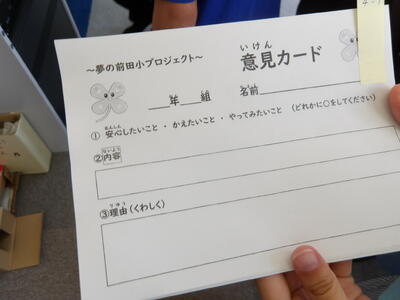 ～夢の前田小プロジェクト～
いけん
意見カード
年 組
なまえ
名前
あんしん
① 安心したいこと ・ かえたいこと ・ やってみたいこと （どれかに○をしてください）
ないよう
②内容
りゆう
③理由（くわしく）